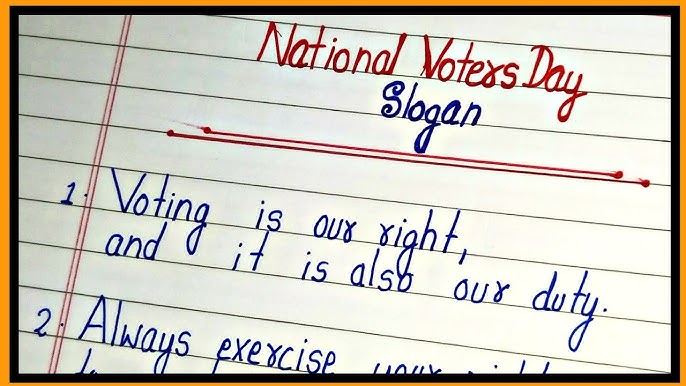 National Voters Day
Slogan
1. Voting is our right,
and it is also our duty.
2. Always exercise your right